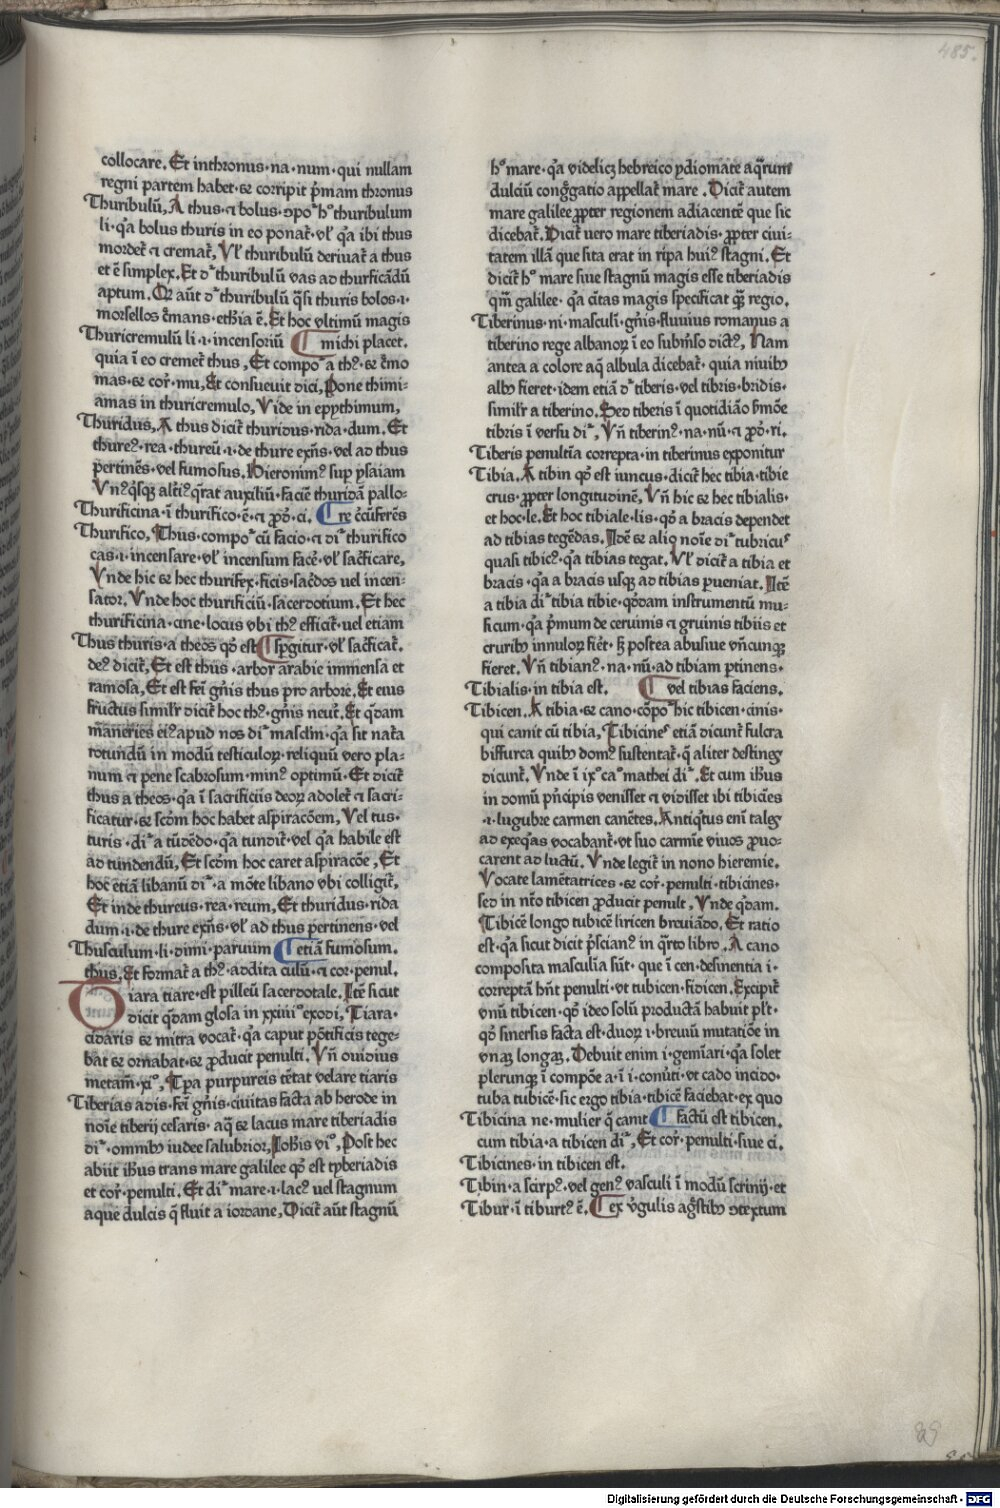 485.
collocare. Et inthronus·na·num·qui nullam
regni partem habet·⁊ corripit p̄mam thronus
Thuribulū, A thus·⁊ bolus·ↄpoͦ hͦ thuribulum
li·q̇a bolus thuris in eo ponat̄·vl̕ q̇a ibi thus
mordet̄ ⁊ cremat̄, Vl̕ thuribulū deriuat̄ a thus
et ē simplex. Et dͬ thuribulū vas ad thurficādū
aptum. Qꝛ aūt dͬ thuribulū q̄si thuris bolos·i·
morsellos c̄mans·ethīa ē. Et hoc vltimū magis
Thuricremulū li·i·incensoriū ¶ michi placet.
quia ī eo cremet̄ thus, Et compoͦ a thꝰ·⁊ c̄mo
mas·⁊ cor̄·mu, Et consueuit dici, Pone thimi-
amas in thuricremulo, Vide in epythimum,
Thuridus, A thus dicit̄ thuridus·rida·dum. Et
thureꝰ·rea·thureū·i·de thure exn̄s·vel ad thus
pertinēs·vel fumosus. Hieronimꝰ sup̄ ysaiam
Vnꝰq̇sq̨ alt̄iꝰ q̄rat auxiliū·faciē thuridā pallo-
Thurificina·ī thurifico·ē·⁊ ꝓdͦ·ci. ¶ re c̄cūferēs
Thurifico, Thus·compoͦ cū facio·⁊ diͬ thurifico
cas·i·incensare·vl̕ incensum facē·vl̕ sac̄ficare,
Vnde hic ⁊ hec thurifex·ficis·sac̄dos uel incen-
sator. Vnde hoc thurificiū·sacerdotium. Et hec
thurificina·cine·locus vbi thꝰ efficit̄·uel etiam
Thus thuris·a theos qd̕ est ¶ sp̄gitur·vl̕ sac̄ficat̄.
deꝰ dicit̄, Et est thus·arbor arabie immensa et
ramosa, Et est fēi gn̄is thus pro arbore. Et eius
fructus similr̄ dicit̄ hoc thꝰ·gn̄is neut̄. Et q̄dam
māneries eiꝰ apud nos diͬ masclm̄·q̇a sit nata
rotundū in modū testiculoꝝ·reliquū vero pla-
num ⁊ pene scabrosum·minꝰ optimū·Et dicit̄
thus a theos·q̇a ī sacrificiis deoꝝ adolet̄ ⁊ sacri-
ficatur·⁊ scd̄m hoc habet aspiracōem, Vel tus·
turis·diͬ a tūdēdo·q̇a tundit̄·vel q̇a habile est
ad tundendū, Et scd̄m hoc caret aspiracōe, Et
hoc etiā libanū diͬ·a mōte libano vbi colligit̄,
Et inde thureus·rea·reum, Et thuridus·rida
dum·i·de thure exn̄s·vl̕ ad thus pertinens·vel
Thusculum·li·dimi·paruum ¶ etiā fumosum.
thus. Et format̄ a thꝰ·addita culū·⁊ cor·penul.
Tiara tiare·est pilleū sacerdotale. Itē sicut
dicit q̇dam glosa in xxiiiiͦ exodi, Tiara·
cidaris ⁊ mitra vocat̄·q̇a caput pōtificis tege-
bat ⁊ ornabat·⁊ ꝓducit penulti. Vn̄ ouidius
metam̄·xiͦ, Tp̄a purpureis tētat velare tiaris
Tiberias adis·fēi gn̄is·ciuitas facta ab herode in
noīe tiberij cesaris·aq̇ ⁊ lacus mare tiberiadis
diͬ·omnib̨ iudee salubrior, Ioh̄is viͦ, Post hec
abiit ih̄us trans mare galilee qd̕ est tyberiadis
et cor̄·penulti. Et diͬ mare·i·lacꝰ uel stagnum
aque dulcis q̇ fluit a iordane, Dicit̄ aūt stagnū
hͦ mare·q̇a videlicꝫ hebreico ydiomate aq̇rum
dulciū congḡgatio appellat̄ mare. Dicit̄ autem
mare galilee ꝓpter regionem adiacentē que sic
dicebat̄. Dicit̄ uero mare tiberiadis·ꝓpter ciui-
tatem illā que sita erat in ripa huiꝰ stagni. Et
dicit̄ hͦ mare siue stagnū magis esse tiberiadis
qm̄ galilee·q̇a ciu̅tas magis specificat qꝫ regio.
Tiberinus·ni·masculi·gn̄is·fluuius romanus a
tiberino rege albanoꝝ ī eo subm̄so dictꝰ, Nam
antea a colore aq̄ albula dicebat̄·quia niuib̨
alb̨ fieret·idem etiā dͬ tiberis·vel tibris·bridis·
similr̄ a tiberino. Sed tiberis ī quotidiāo s̄mōe
tibris ī versu diͬ, Vn̄ tiberinꝰ·na·nū·⁊ ꝓdͦ·ri.
Tiberis penultīa correpta·in tiberinus exponitur
Tibia. A tibin qd̕ est iuncus·dicit̄ hec tibia·tibie
crus·ꝓpter longitudinē, Vn̄ hic ⁊ hec tibialis·
et hoc·le. Et hoc tibiale·lis·qd̕ a bracis dependet
ad tibias tegēdas. Idē ⁊ alio noīe diͬ tubricuꝰ
quasi tibicꝰ·q̇a tibias tegat. Vl̕ dicit̄ a tibia et
bracis·q̇a a bracis usq̨ ad tibias ꝑueniat. Itē
a tibia diͬ tibia tibie·qd̕dam instrumentū mu-
sicum·q̇a p̄mum de ceruinis ⁊ gruinis tibiis et
crurib̨ innuloꝝ fiēt·sꝫ postea abusiue vn̄cunq̨
fieret. Vn̄ tibianꝰ·na·nū·ad tibiam ꝑtinens.
Tibialis·in tibia est. ¶ vel tibias faciens.
Tibicen. A tibia·⁊ cano·cōpoͦ hic tibicen·cinis·
qui canit cū tibia, Tibicineˢ etiā dicunt̄ fulcra
biffurca quib̨ domꝰ sustentat̄·q̄ aliter destine
dicunt̄. Vnde ī ixͦ caͦ mathei diͬ. Et cum ih̄us
in domū p̄ncipis venisset ⁊ vidisset ibi tibicīes
·i·lugubre carmen canētes. Antiq̇tus enī talꝫ
ad exeq̇as vocabant̄·vt suo carmīe viuos ꝓuo-
carent ad luctū. Vnde legit̄ in nono hieremie.
Vocate lamētatrices·⁊ cor̄·penulti·tibicines·
sed in nt̄o tibicen ꝓducit penult̄, Vnde q̇dam.
Tibicē longo tubicē liricen breuiādo. Et ratio
est·q̇a sicut dicit p̄scianꝰ in q̇rto libro. A cano
composita masculīa sūt·que ī cen·desinentia i·
correptā hn̄t penulti·vt tubicen·fidicen. Excipit̄
vnū tibicen·qd̕ ideo solū productā habuit pl̄t·
qd̕ sinersis facta est·duoꝝ i·breuiū mutatiōe in
vnaꝫ longaꝫ. Debuit enim i·gemīari·q̇a solet
plerunq̨ ī compōe a·ī i·conūti·vt cado incido·
tuba tubicē·sic ergo tibia·tibicē faciebat·ex quo
Tibicina ne·mulier q̄ canit ¶ factū est tibicen.
cum tibia·a tibicen diͬ, Et cor̄·penulti·siue ci.
Tibicines·in tibicen est.
Tibin·a scirpꝰ·vel genꝰ vasculi ī modū scrinij·et
Tibur·ī tiburtꝰ ē. ¶ ex v̄gulis aḡstib̨ ↄtextum
89
Digitalisierung gefördert durch die Deutsche Forschungsgemeinschaft - DFG